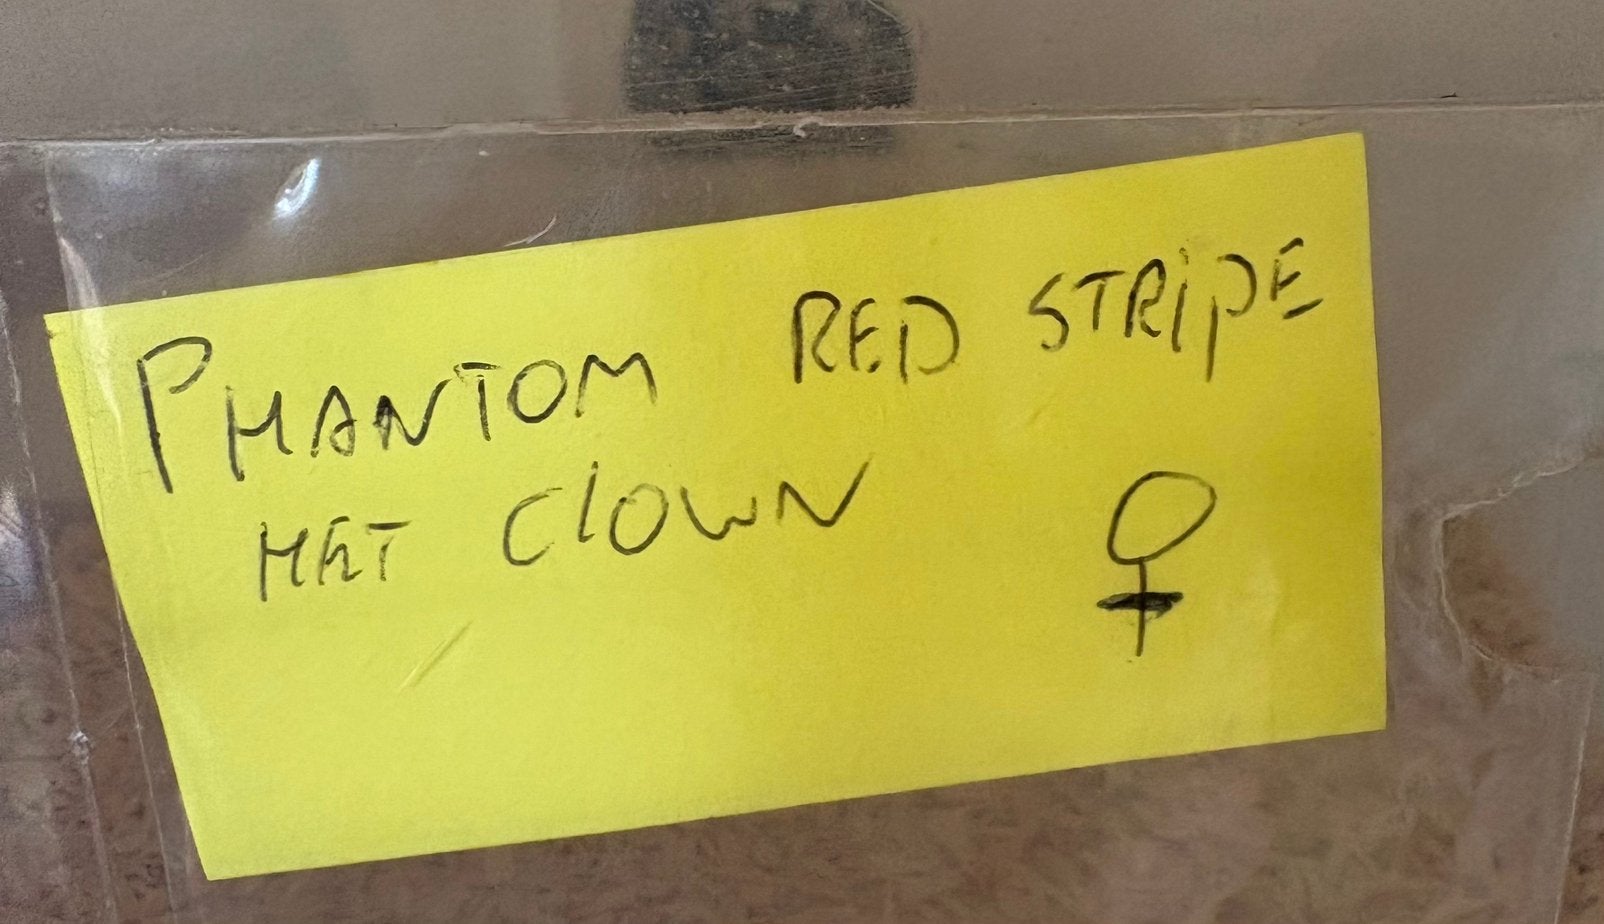 PHANTOM RED STRiPE
HET ClOWN ♀